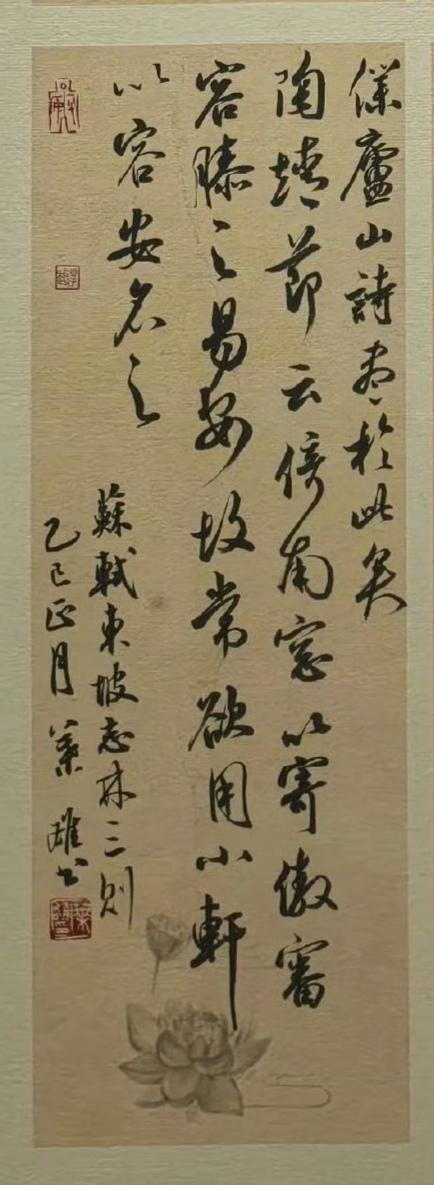 僕廬山詩盡於此矣
陶靖節云倚南窗以寄傲審
容膝之易安故常欲用小軒
以容安名之
蘇軾東坡志林三則
乙巳正月葉雄书